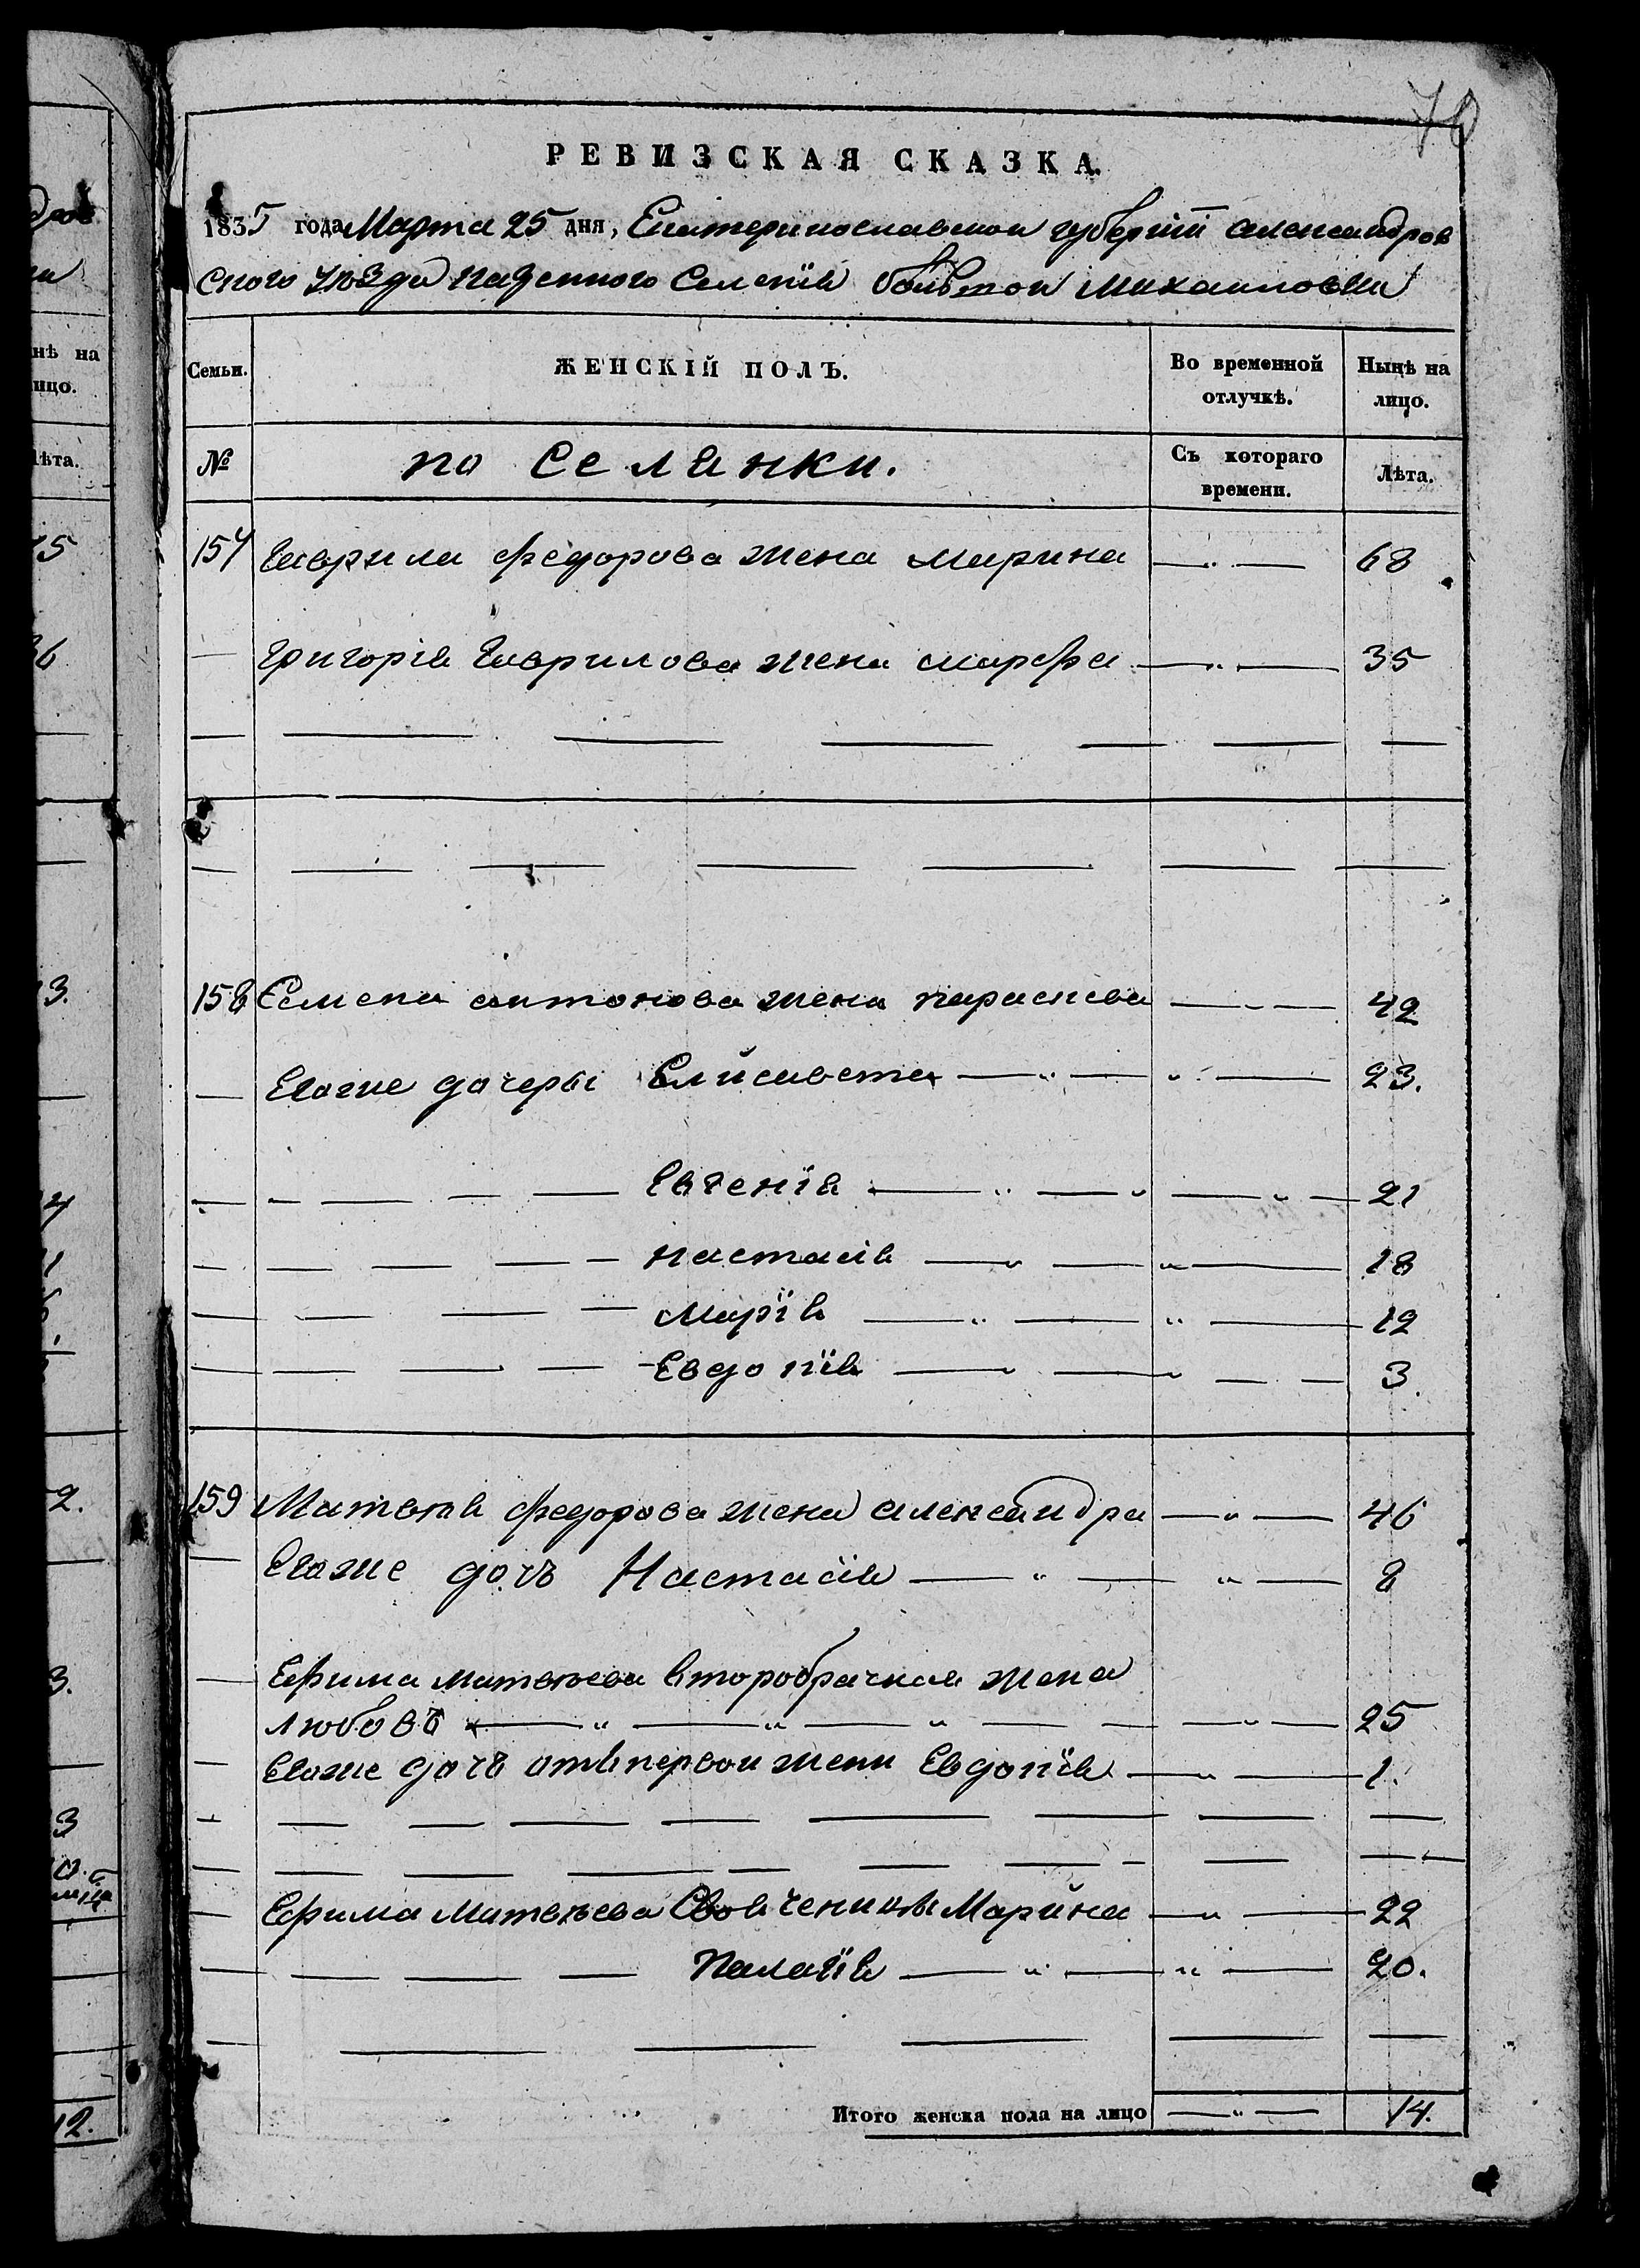 70
РЕВИЗСКАЯ СКАЗКА.
1835 года Марта 25 дня, Екатеринославской губернїи Александров
ского уѣзда казенного Селенїя большой Михайловки
Семьи. ЖЕНСКІЙ ПОЛЪ. Во временной отлучкѣ. Нынѣ на лицо.
№ поселянки. Съ котораго времени. Лѣта.
157 Гаврила Федорова жена Марина — 68
Григорія Гаврилова жена Марфа — 35
158 Семена Антонова жена Параскева — 42
Егоже дочеры Елисавета — 23.
Евгенїя — 21
Настасія — 18
Марїя — 12
Евдокїя — 3
159 Матвѣя Федорова жена Александра — 46
Егоже дочь Настасїя — 8
Ефима Матвѣева второбрачная жена
Любовь — 25
Егоже дочь отъ первой жены Евдокїя — 1.
Ефима Матвѣева Марина — 22
Палагїя — 20.
Итого женска пола на лицо — 14.
нѣ на
ицо.
лѣта.
12.